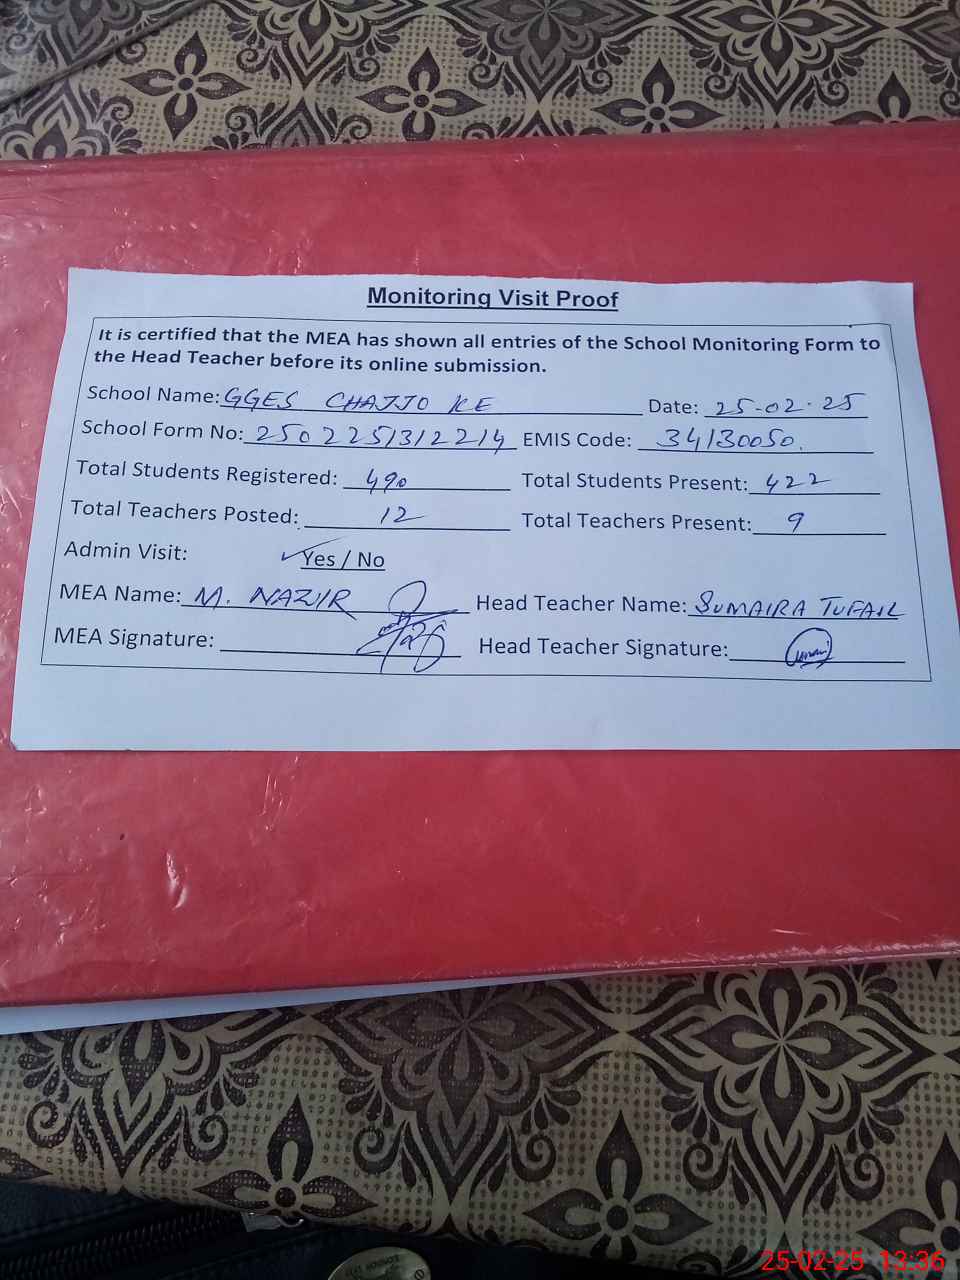 Monitoring Visit Proof
It is certified that the MEA has shown all entries of the School Monitoring Form to
the Head Teacher before its online submission.
School Name: GGES CHAJJO KE Date: 25-02-25
School Form No: 2502251312214 EMIS Code: 34130050.
Total Students Registered: 490 Total Students Present: 422
Total Teachers Posted: 12 Total Teachers Present: 9
Admin Visit: ✓Yes / No
MEA Name: M. NAZIR Head Teacher Name: SUMAIRA TUFAIL
MEA Signature: Head Teacher Signature:
25-02-25 13:36